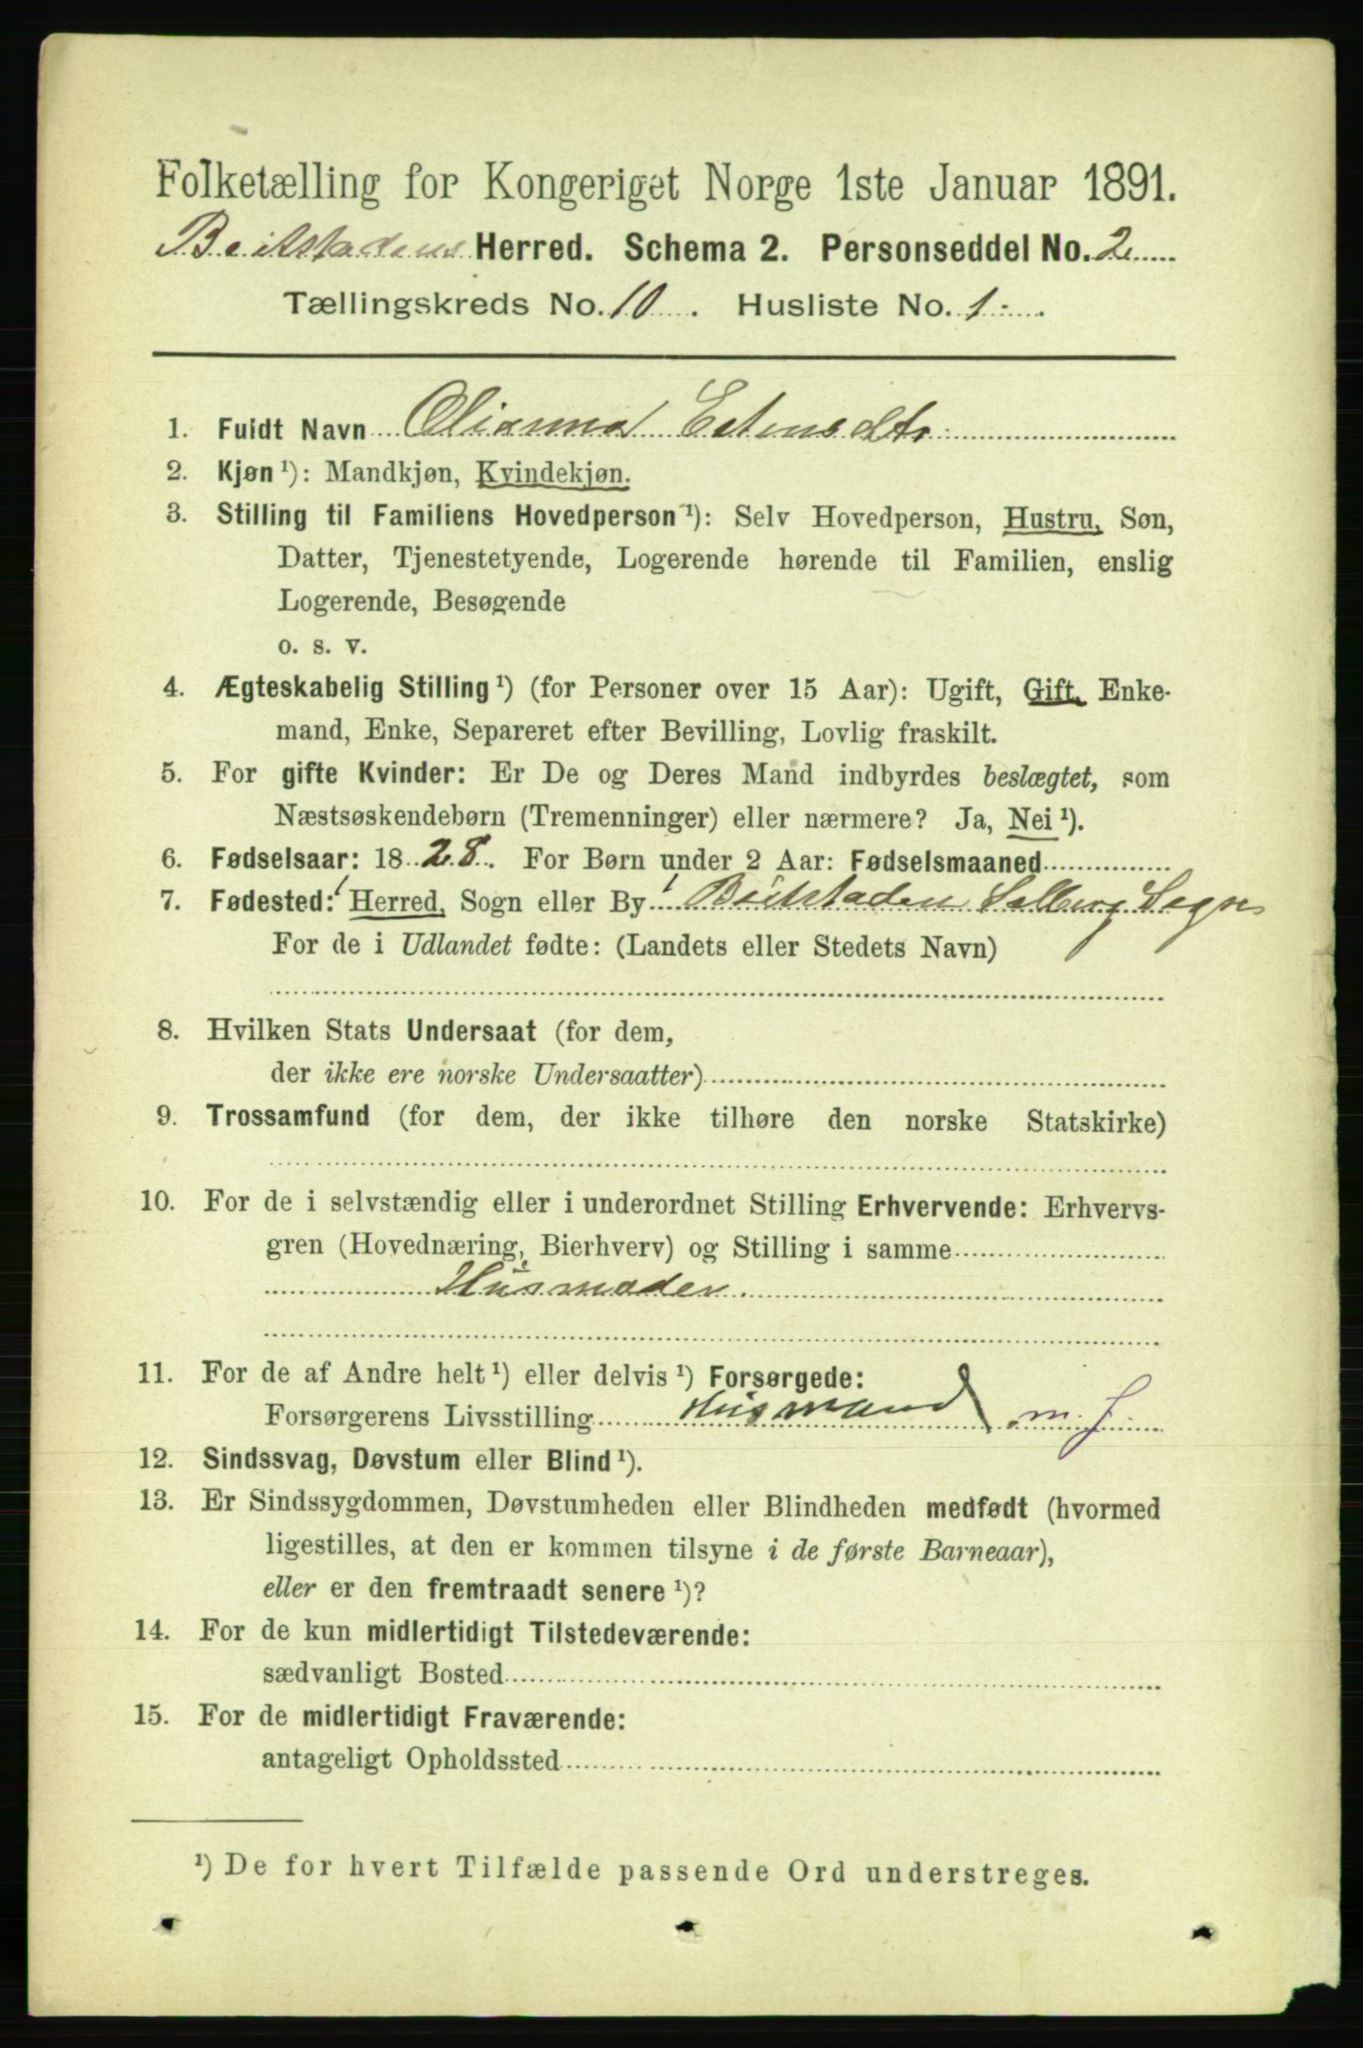 Folketælling for Kongeriget Norge 1ste Januar 1891.
Beitstadens Herred. Schema 2. Personseddel No. 2
Tællingskreds No. 10. Husliste No. 1.
1. Fuldt Navn Olianna Estensdtr.
2. Kjøn ¹): Mandkjøn, Kvindekjøn.
3. Stilling til Familiens Hovedperson ¹): Selv Hovedperson, Hustru, Søn,
Datter, Tjenestetyende, Logerende hørende til Familien, enslig
Logerende, Besøgende
o. s. v.
4. Ægteskabelig Stilling ¹) (for Personer over 15 Aar): Ugift, Gift, Enke-
mand, Enke, Separeret efter Bevilling, Lovlig fraskilt.
5. For gifte Kvinder: Er De og Deres Mand indbyrdes beslægtet, som
Næstsøskendebørn (Tremenninger) eller nærmere? Ja, Nei ¹).
6. Fødselsaar: 1828. For Børn under 2 Aar: Fødselsmaaned
7. Fødested: Herred, Sogn eller By Beitstaden Solberg Sogn
For de i Udlandet fødte: (Landets eller Stedets Navn)
8. Hvilken Stats Undersaat (for dem,
der ikke ere norske Undersaatter)
9. Trossamfund (for dem, der ikke tilhøre den norske Statskirke)
10. For de i selvstændig eller i underordnet Stilling Erhvervende: Erhvervs-
gren (Hovednæring, Bierhverv) og Stilling i samme
Husmoder.
11. For de af Andre helt ¹) eller delvis ¹) Forsørgede:
Forsørgerens Livsstilling Husmand m. J.
12. Sindssvag, Døvstum eller Blind ¹).
13. Er Sindssygdommen, Døvstumheden eller Blindheden medfødt (hvormed
ligestilles, at den er kommen tilsyne i de første Barneaar),
eller er den fremtraadt senere ¹)?
14. For de kun midlertidigt Tilstedeværende:
sædvanligt Bosted
15. For de midlertidigt Fraværende:
antageligt Opholdssted
¹) De for hvert Tilfælde passende Ord understreges.